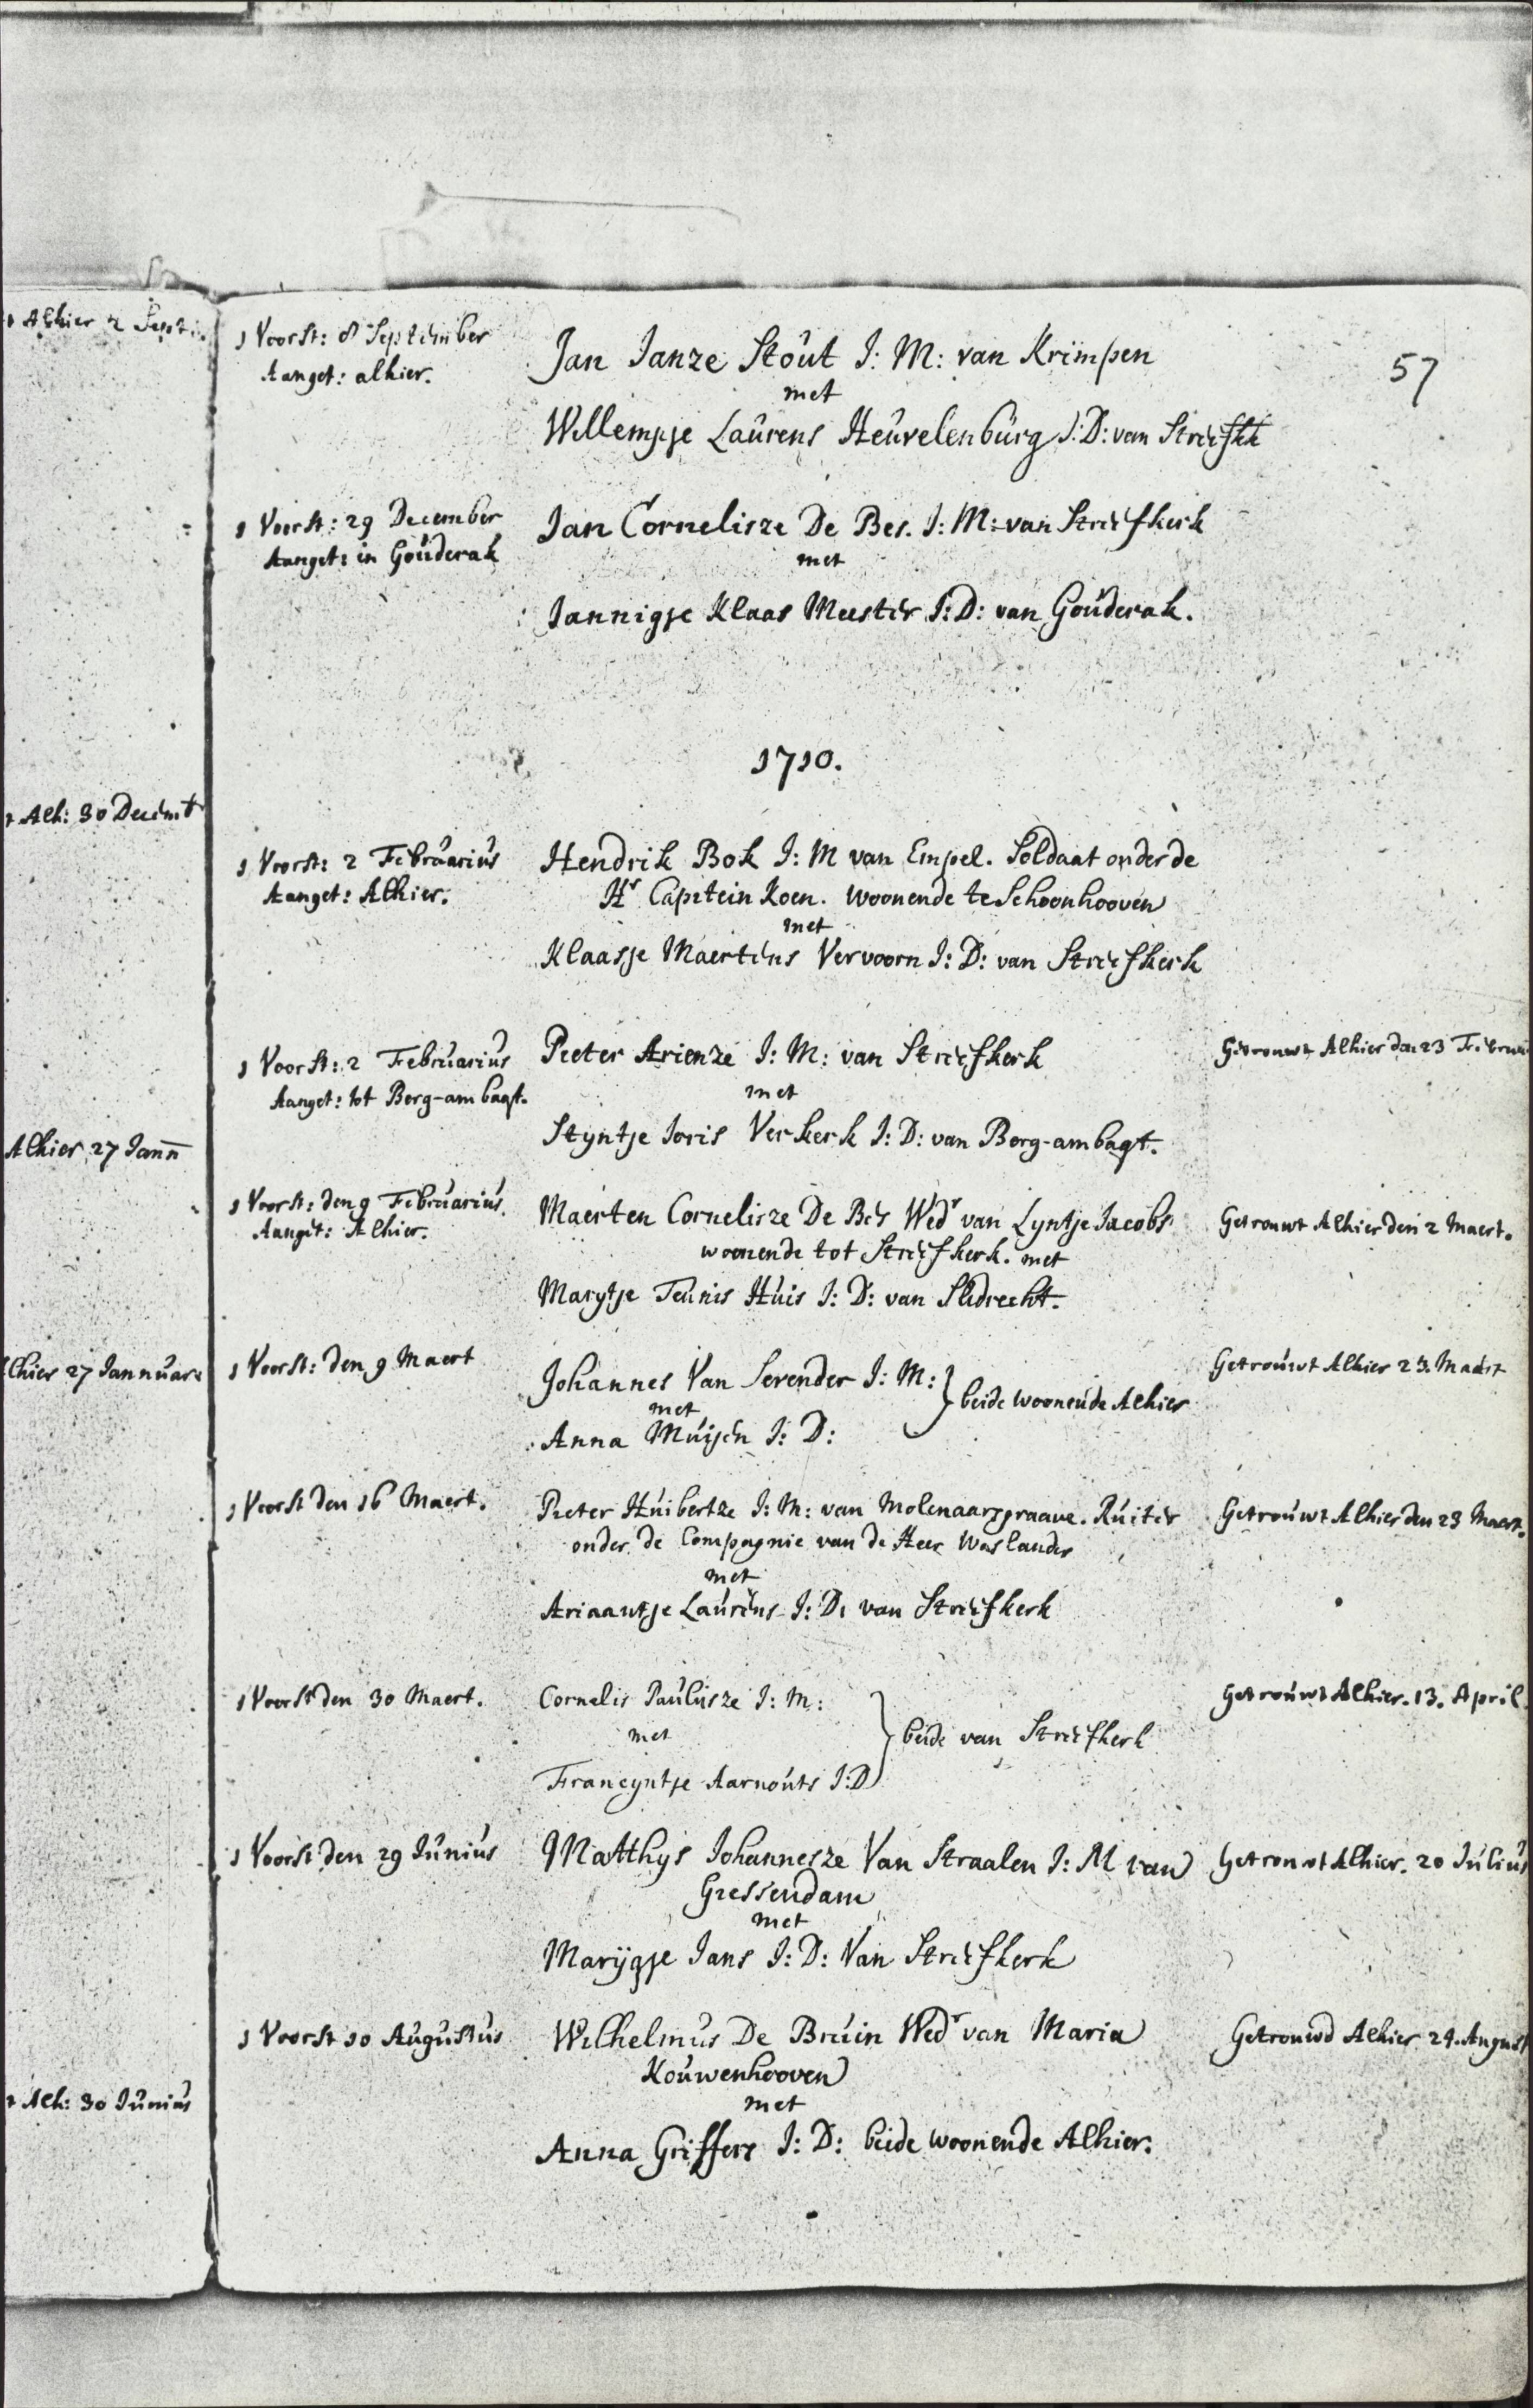 t Alhier 2 Sept:
t Alh: 30 Decemb
Alhier 27 Jann
lhier 27 Jannuari
t Alh: 30 Junius
57
1 Voorst: 8 September
Aanget: alhier.
Jan Janze Stout J: M: van Krimpen
met
Willempje Laurens Heuvelenburg J: D: van Streefkk
1 Voorst: 29 December
Aanget: in Gouderak
Jan Cornelisze De Bes. J: M: van Streefkerk
met
Jannigje Klaas Meester J: D: van Gouderak.
1710.
1 Voorst: 2 Februarius
Aanget: Alhier.
Hendrik Bok J: M van Empel. Soldaat onder de
Hr Capitein Koen. woonende te Schoonhooven
met
Klaasje Maertens Vervoorn J: D: van Streefkerk
1 Voorst: 2 Februarius
Aanget: tot Berg-ambagt.
Peeter Arienze J: M: van Streefkerk
met
Styntje Joris Verkerk J: D: van Berg-ambagt.
Getrouwt Alhier den 23 Februa
1 Voorst: den 9 Februarius
Aanget: Alhier.
Maerten Cornelisze De Bes Wedr van Lyntje Jacobs
woonende tot Streefkerk. met
Marytje Teunis Huis J: D: van Slidrecht.
Getrouwt Alhier den 2 Maert.
1 Voorst: den 9 Maert
Johannes Van Serender J: M:
met
Anna Muijen J: D:
beide woonende Alhier
Getrouwt Alhier 23 Maert
1 Voorst den 16 Maert.
Peeter Huibertze J: M: van Molenaarsgraave. Ruiter
onder de Compagnie van de Heer Waslander
met
Ariaantje Laurens J: D: van Streefkerk
Getrouwt Alhier den 23 Maert.
1 Voorst den 30 Maert.
Cornelis Paulusze J: M:
met
Francyntje Aarnouts J: D
beide van Streefkerk
Getrouwt Alhier. 13. April.
1 Voorst den 29 Junius
Matthys Johannesze Van Straalen J: M van
Giessendam
met
Marijgje Jans J: D: Van Streefkerk
Getrouwt Alhier. 20 Julius
1 Voorst 10 Augustus
Wilhelmus De Bruin Wedr van Maria
Kouwenhooven
met
Anna Griffers J: D: beide woonende Alhier.
Getrouwd Alhier 24. August